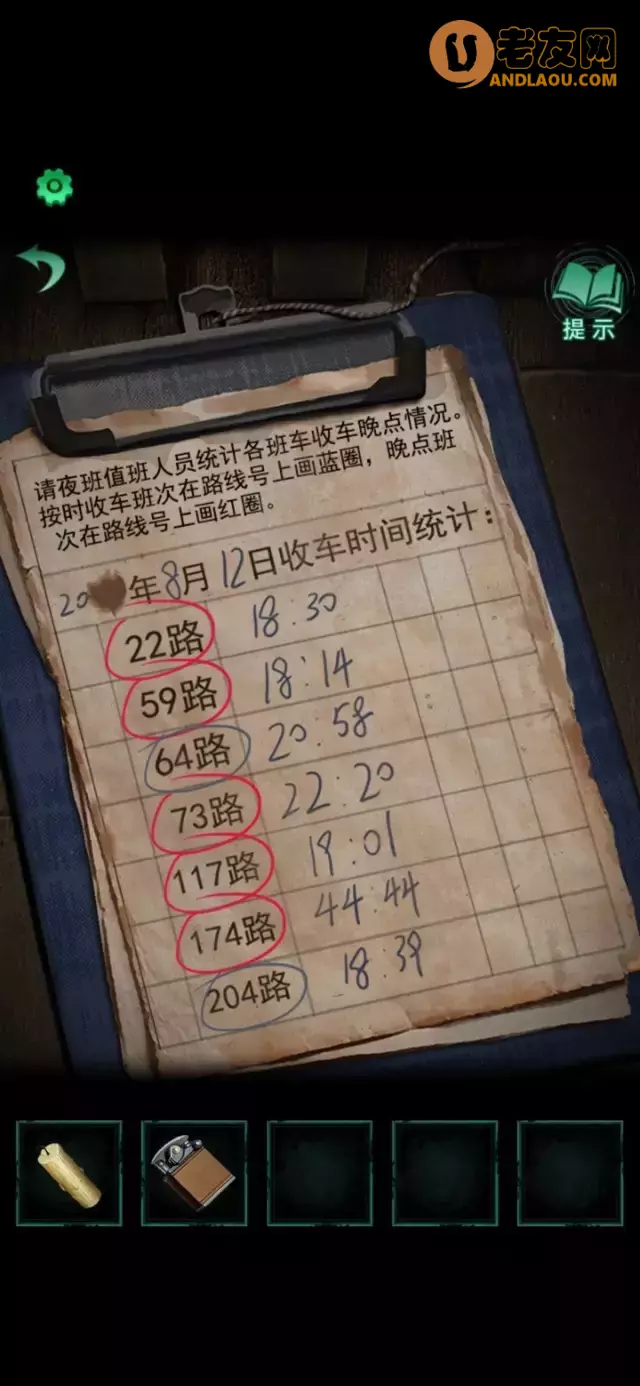 老友网
ANDLAOU.COM
提示
请夜班值班人员统计各班车收车晚点情况。
按时收车班次在路线号上画蓝圈，晚点班
次在路线号上画红圈。
20 年8月12日收车时间统计：
22路 18:30
59路 18:14
64路 20:58
73路 22:20
117路 19:01
174路 44:44
204路 18:39